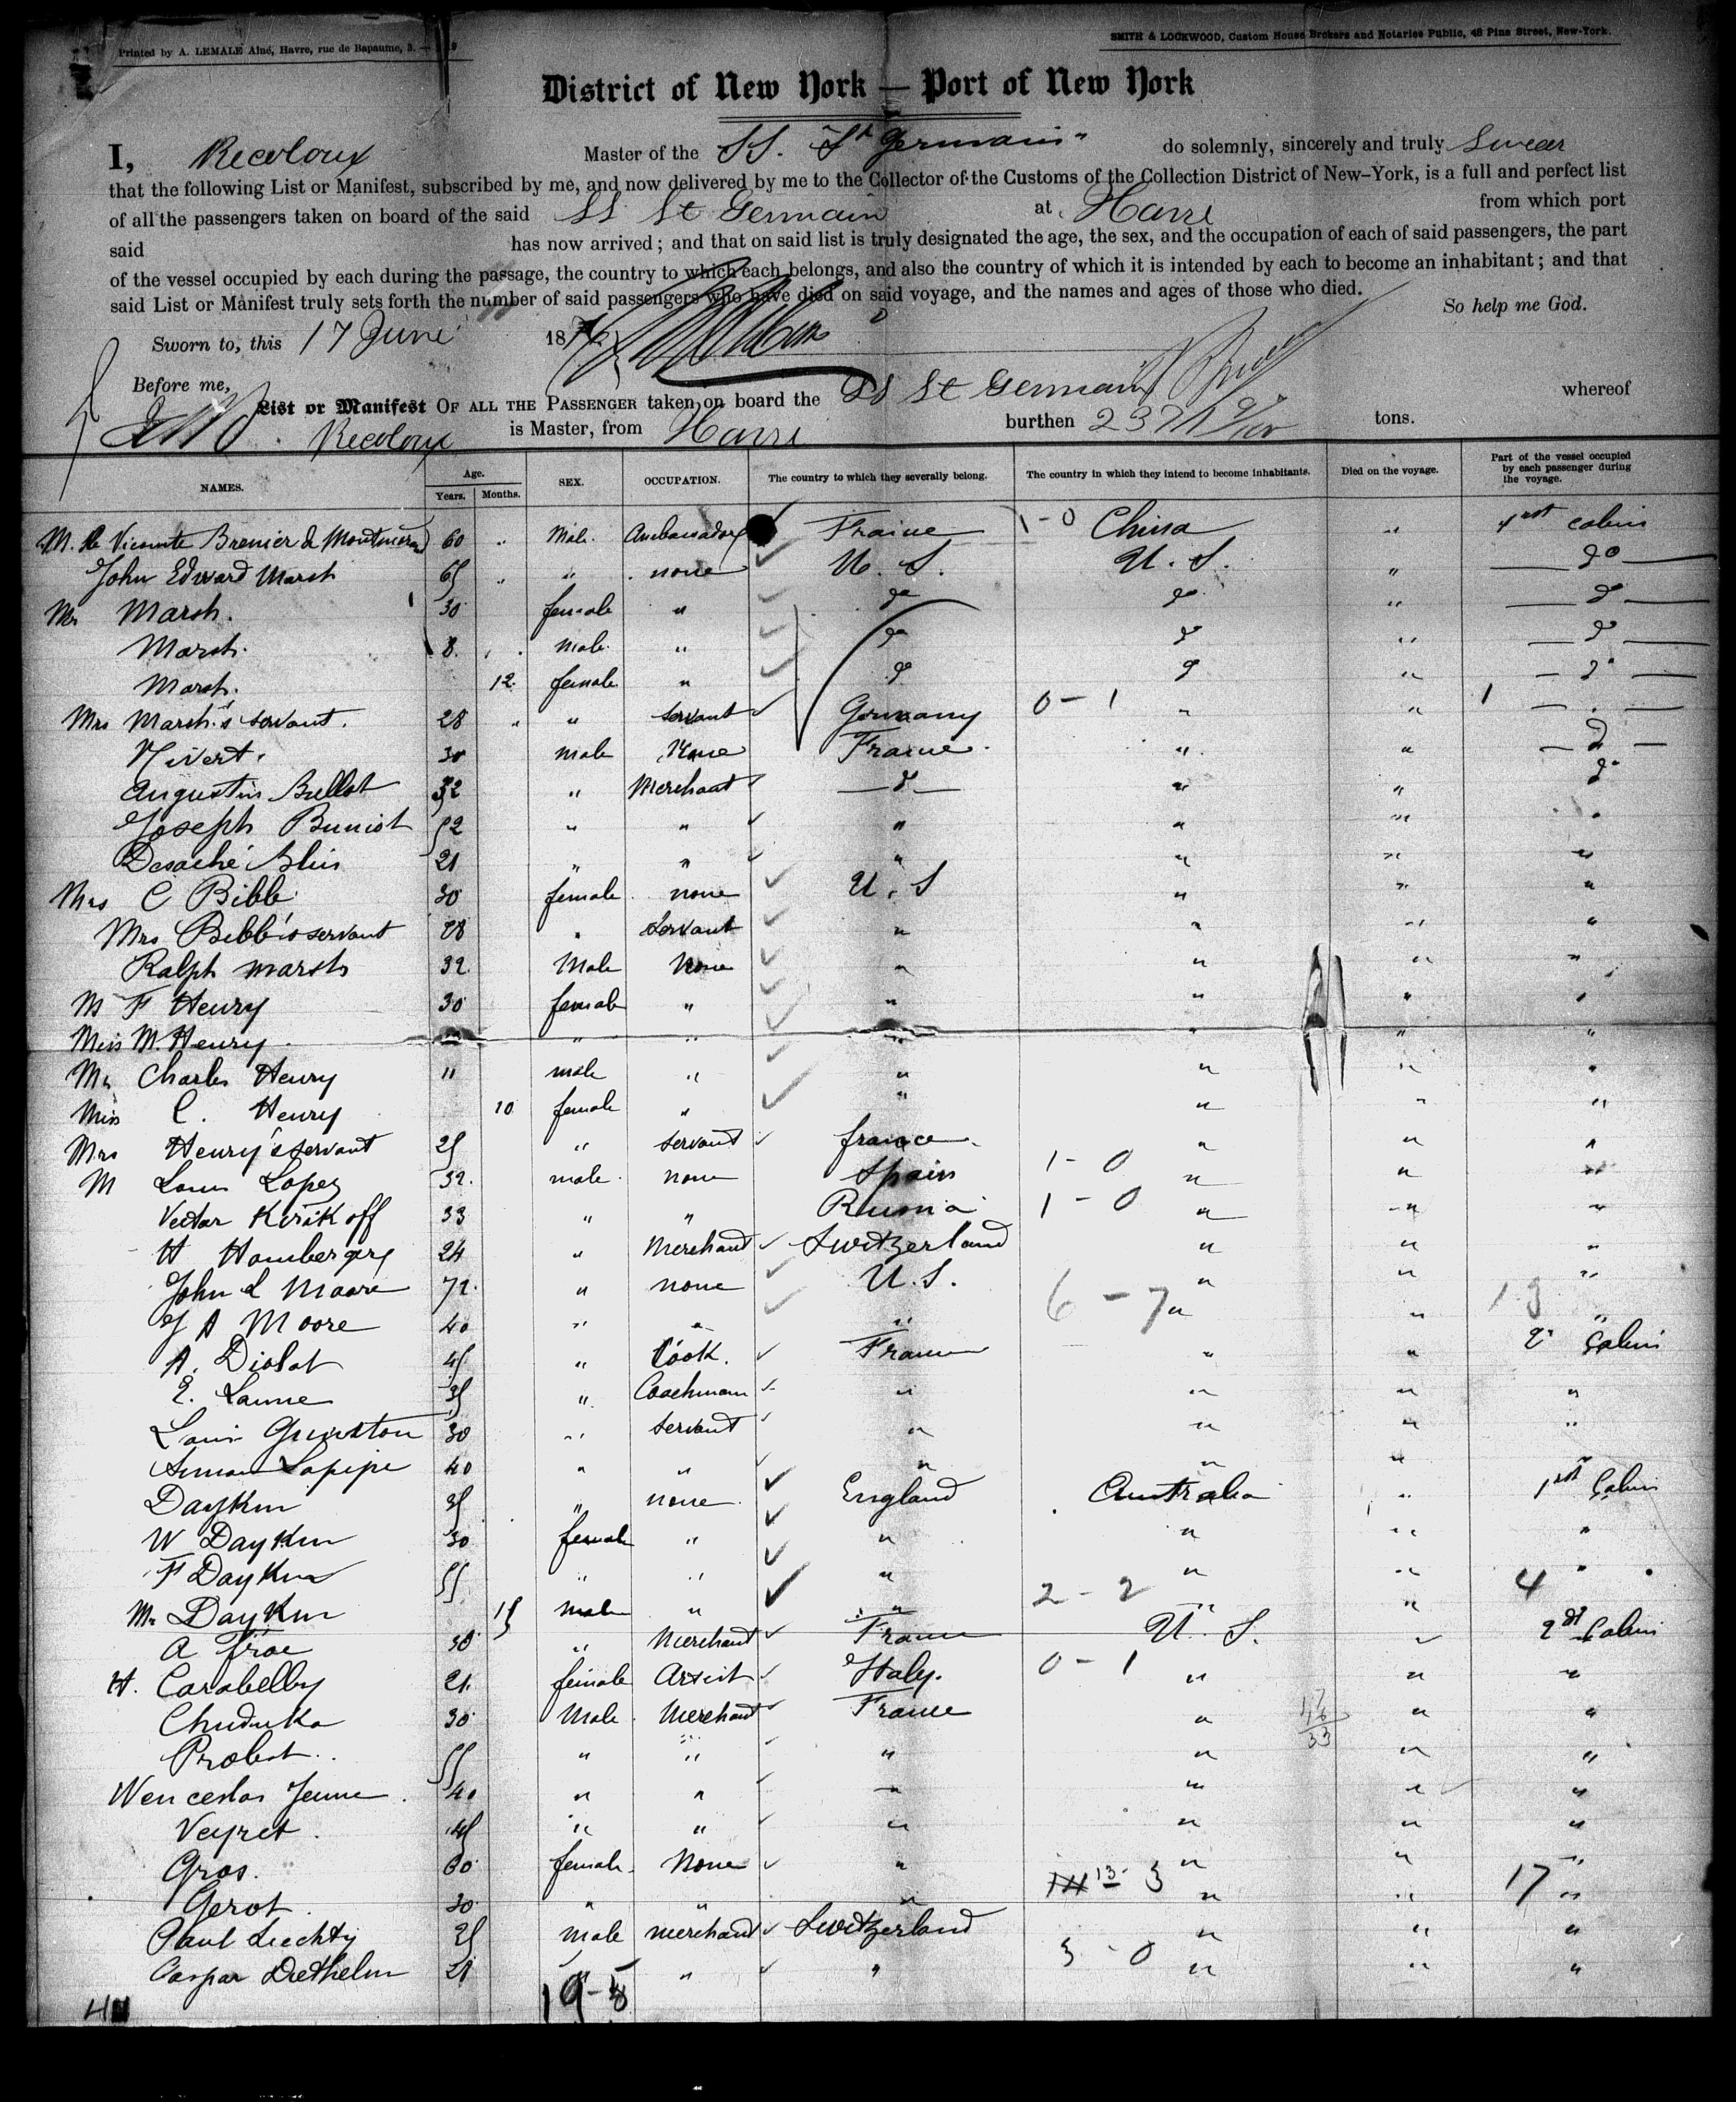 Printed by A. LEMALE Aîné, Havre, rue de Bapaume, 3.
SMITH & LOCKWOOD, Custom House Brokers and Notaries Public, 48 Pine Street, New-York.
District of New York — Port of New York
I, Recoloux Master of the SS. "St Germain" do solemnly, sincerely and truly Swear
that the following List or Manifest, subscribed by me, and now delivered by me to the Collector of the Customs of the Collection District of New-York, is a full and perfect list
of all the passengers taken on board of the said SS St Germain at Havre from which port
said has now arrived; and that on said list is truly designated the age, the sex, and the occupation of each of said passengers, the part
of the vessel occupied by each during the passage, the country to which each belongs, and also the country of which it is intended by each to become an inhabitant; and that
said List or Manifest truly sets forth the number of said passengers who have died on said voyage, and the names and ages of those who died.
So help me God.
Sworn to, this 17 June 1876
Before me,
List or Manifest OF ALL THE PASSENGER taken on board the SS St Germain whereof
Recoloux is Master, from Havre burthen tons.
NAMES. Age. Years. Months. SEX. OCCUPATION. The country to which they severally belong. The country in which they intend to become inhabitants. Died on the voyage. Part of the vessel occupied by each passenger during the voyage.
M. le Vicomte Brenier de Montmorand 60 " Male. Ambassador France 1-0 China " 1st cabin
John Edward Marsh 65 " " none U. S. U. S. " do
Mrs Marsh. 30 female " do do " do
Marsh. 8. male " do do " do
Marsh. 12 female " do do " do
Mrs Marsh's servant. 28 " " servant Germany 0-1 " " 1
Nivert. 30 male None France. " " do
Augustin Bullot 32 " Merchant do " " do
Joseph Buniot 52 " " " " " "
Desaché Blin 21 " " " " " "
Mrs C Bibb 30 female none U. S " " "
Mrs Bibb's servant 28 " Servant " " " "
Ralph Marsh 32 Male None " " " "
M F Henry 30 female " " " " "
Miss M. Henry " " " " " "
Mr Charles Henry 11 male " " " " "
Miss C. Henry 10 female " " " " "
Mrs Henry's servant 25 " servant france " " "
M Louis Lopez 32. male none Spain 1-0 " " "
Victor Kirikoff 33 " " Russia 1-0 " " "
H Hamberger 24 " Merchant Switzerland " " "
John L Moore 72. " none U.S. " " "
J A Moore 40 " " " 6-7 " " 13 "
A. Diolot 45 " Cook. France " " 2d Cabin
E. Lanne 35 " Coachman " " " "
Louis Gunston 30 " servant " " " "
Simon Lapipe 40 " " " " " "
Daykin 35 " none England Australia " 1st Cabin
W Daykin 30 female " " " " "
F Daykin 55 " " " " " 4 "
Mr Daykin 15 male " " 2-2 " "
A Froe 30 " Merchant France U. S. " 2d Cabin
H. Carabelly 21 female Artist Italy. 0-1 " " "
Chuduka 30 Male Merchant France " " "
17
16
33
Probst. 55 " " " " " "
Wenceslas Jeune 40 " " " " " "
Veyret 45 " " " " " "
Gros. 30 female None " " " "
Gerot 30 " " " 13-3 " " 17 "
Paul Liechty 25 male merchant Switzerland " " "
Caspar Diethelm 21 " " " 3-0 " " "
19-5